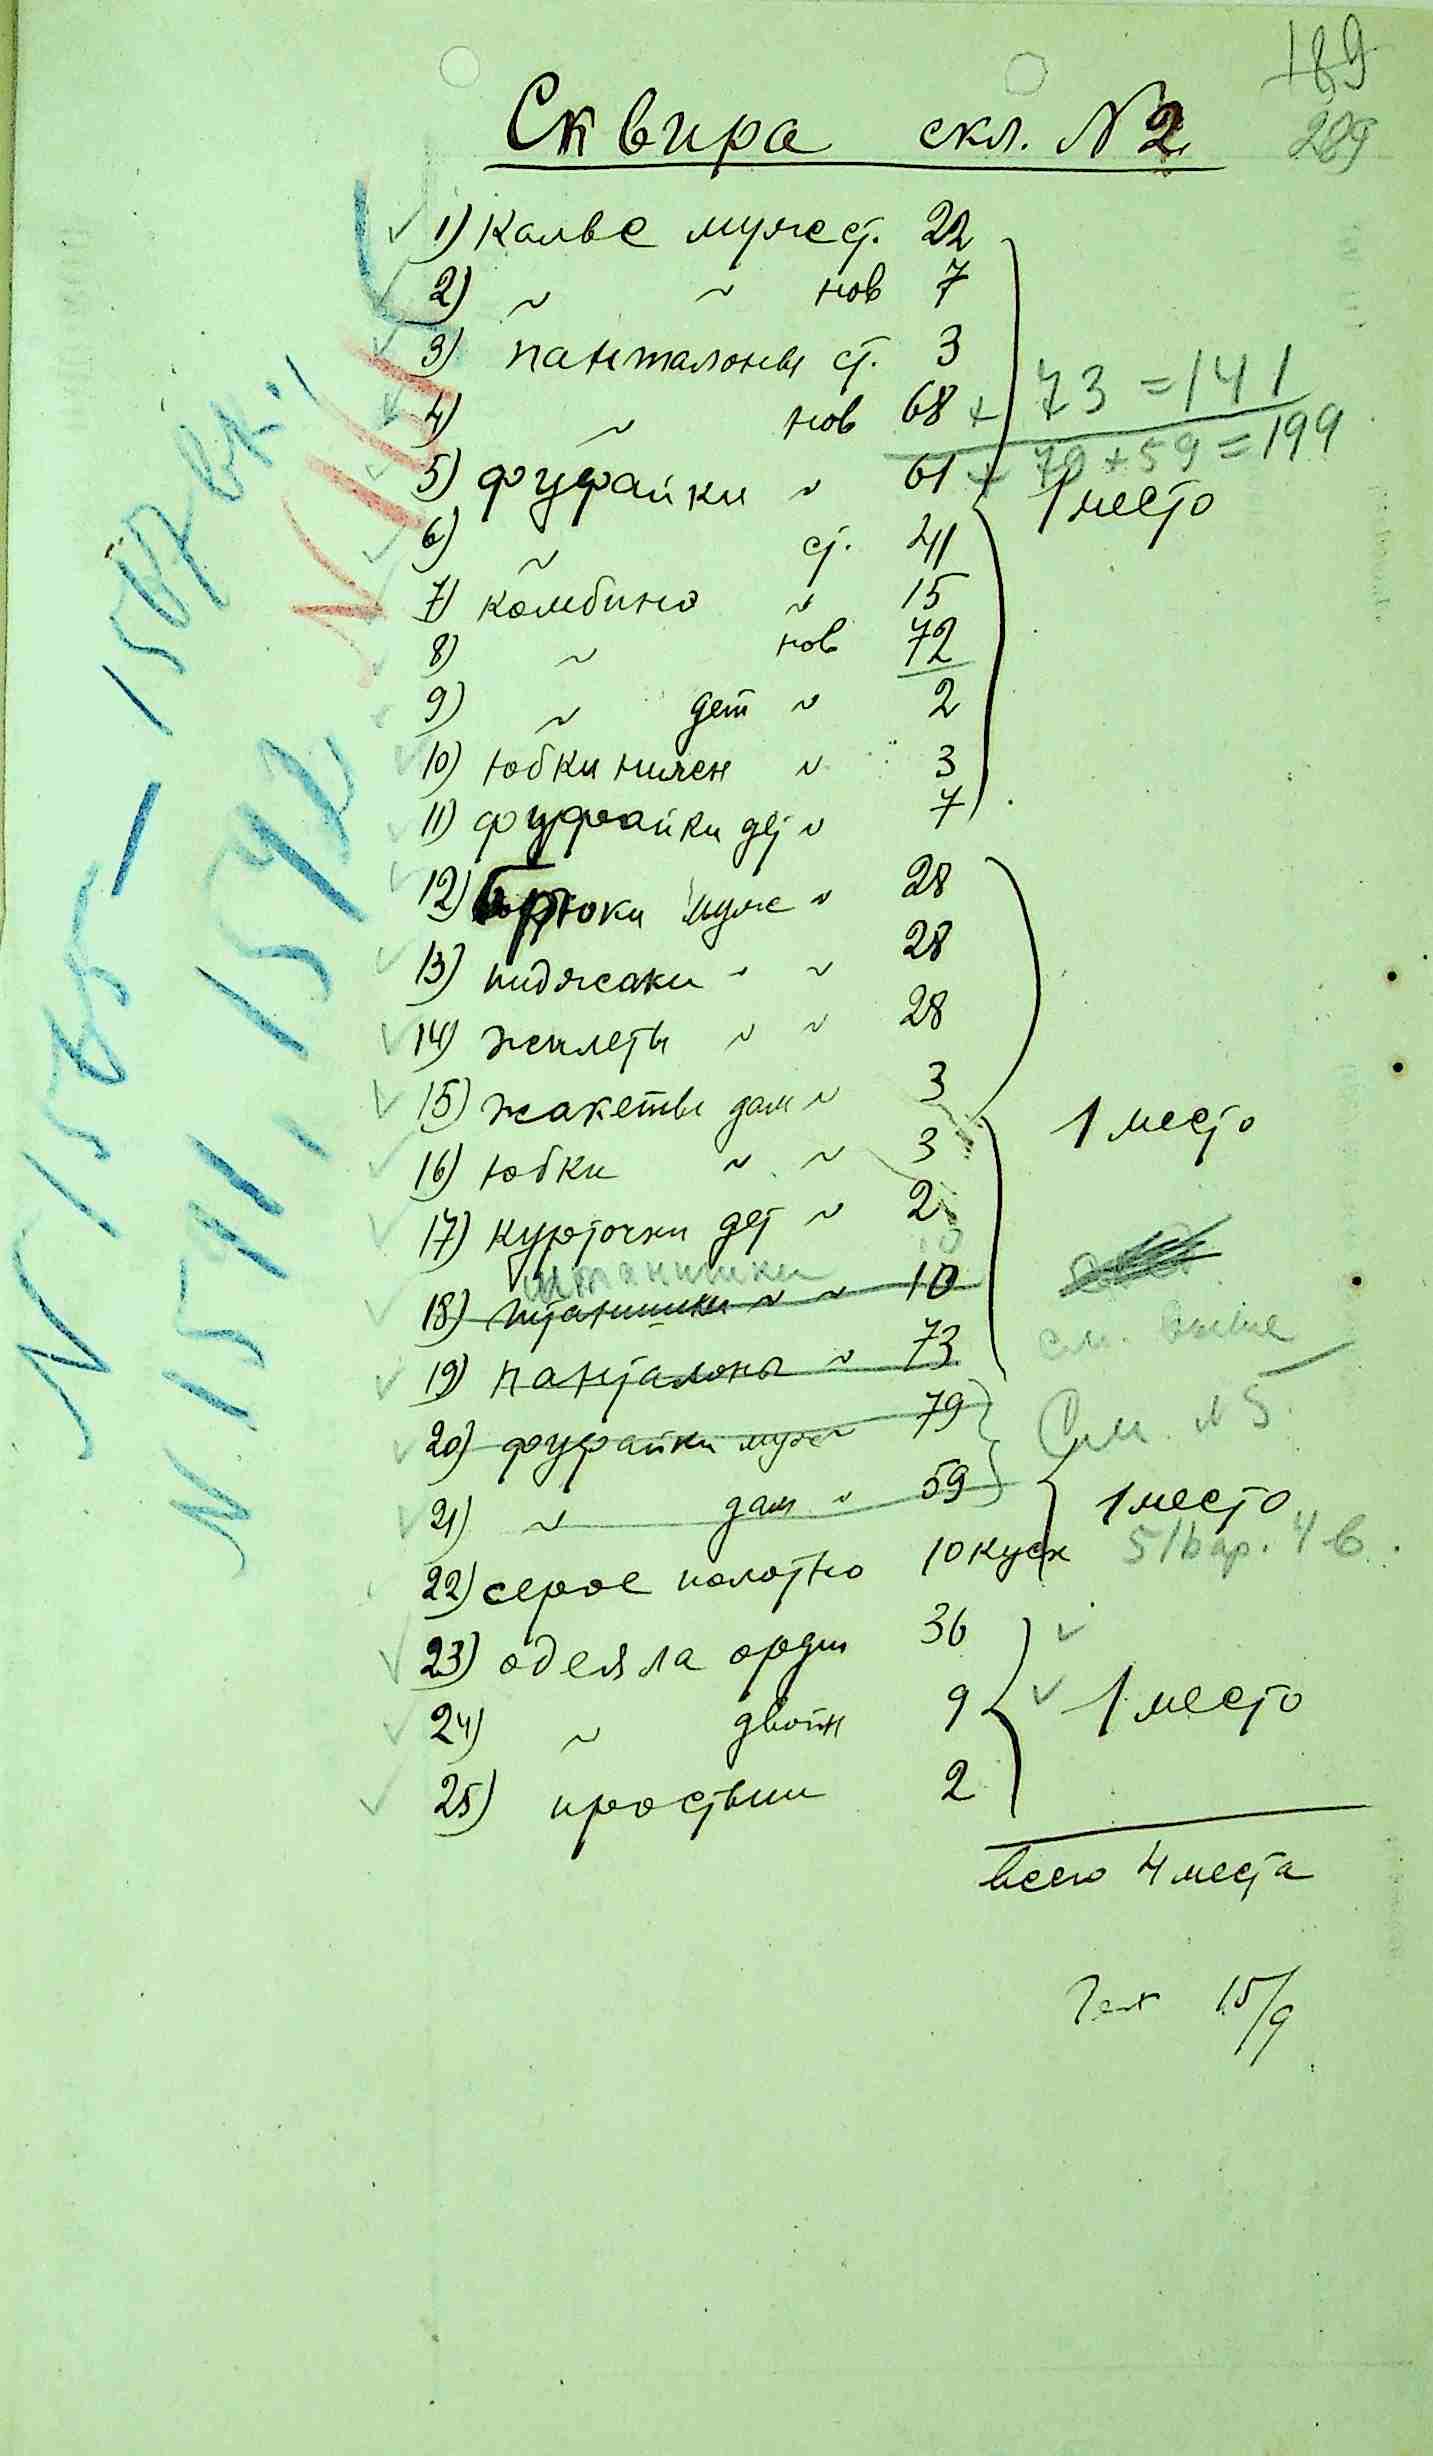 189
289
Сквира скл. N 2
1) Кальс мужс ст. 22
2) ~ ~ нов 7
3) панталоны ст. 3
4) ~ нов 68 + 73 = 141
5) фуфайки ~ 61 + 79 + 59 = 199
1 место
6) ~ ст. 41
7) комбине ~ 15
8) ~ нов 72
9) ~ дет ~ 2
10) юбки нижн ~ 3
11) фуфайки дет ~ 7
12) брюки мужс ~ 28
13) пиджаки ~ ~ 28
14) жилеты ~ ~ 28
15) жакеты дам ~ 3
1 место
16) юбки ~ ~ 3
17) курточки дет ~ 2
штанишки
18) штанишки ~ ~ 10
см. выше
19) панталоны ~ 73
20) фуфайки мужс ~ 79
См. N 5
21) ~ дам ~ 59
1 место
22) серое полотно 10 куск
23) одеяла ордин 36
24) ~ двойн 9
1 место
25) простыни 2
всего 4 места
15/9
N 1585 – 1587 вк.
N 1591, 1592